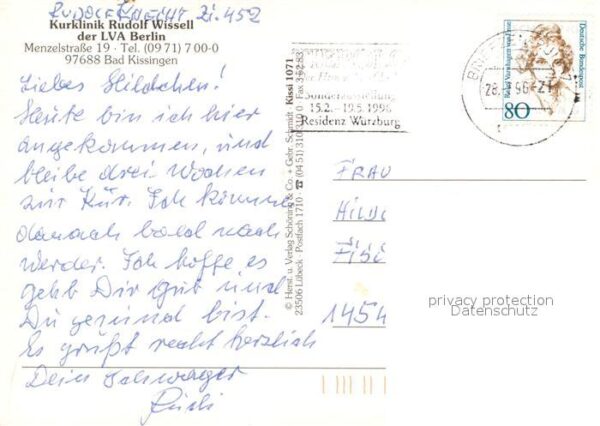 RUDOLF KNECHT Zi. 452
Kurklinik Rudolf Wissell
der LVA Berlin
Menzelstraße 19 · Tel. (09 71) 7 00-0
97688 Bad Kissingen
Liebes Hildchen!
Heute bin ich hier
angekommen, und
bleibe drei Wochen
zur Kur. Ich komme
danach bald nach
Werder. Ich hoffe es
geht Dir gut und
Du gesund bist.
Es grüßt recht herzlich
Dein Schwager
Rudi
© Herst. u. Verlag Schöning & Co. + Gebr. Schmidt
23506 Lübeck · Postfach 1710 · ☎ (04 51) 310310
Kissi 1071
Sonderausstellung
15.2. - 19.5.1996
Residenz Würzburg
Deutsche Bundespost
80
FRAU
HILD
FISC
1454
privacy protection
Datenschutz